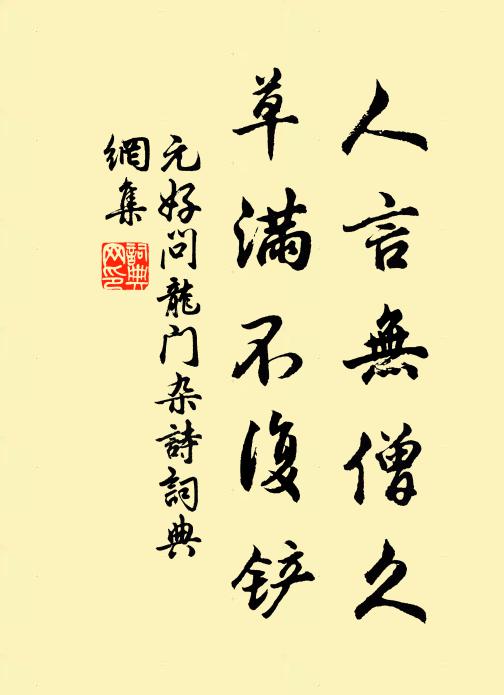 人言無僧久
草滿不復铲
元好问龍门杂詩詞典
網集
詞典网印